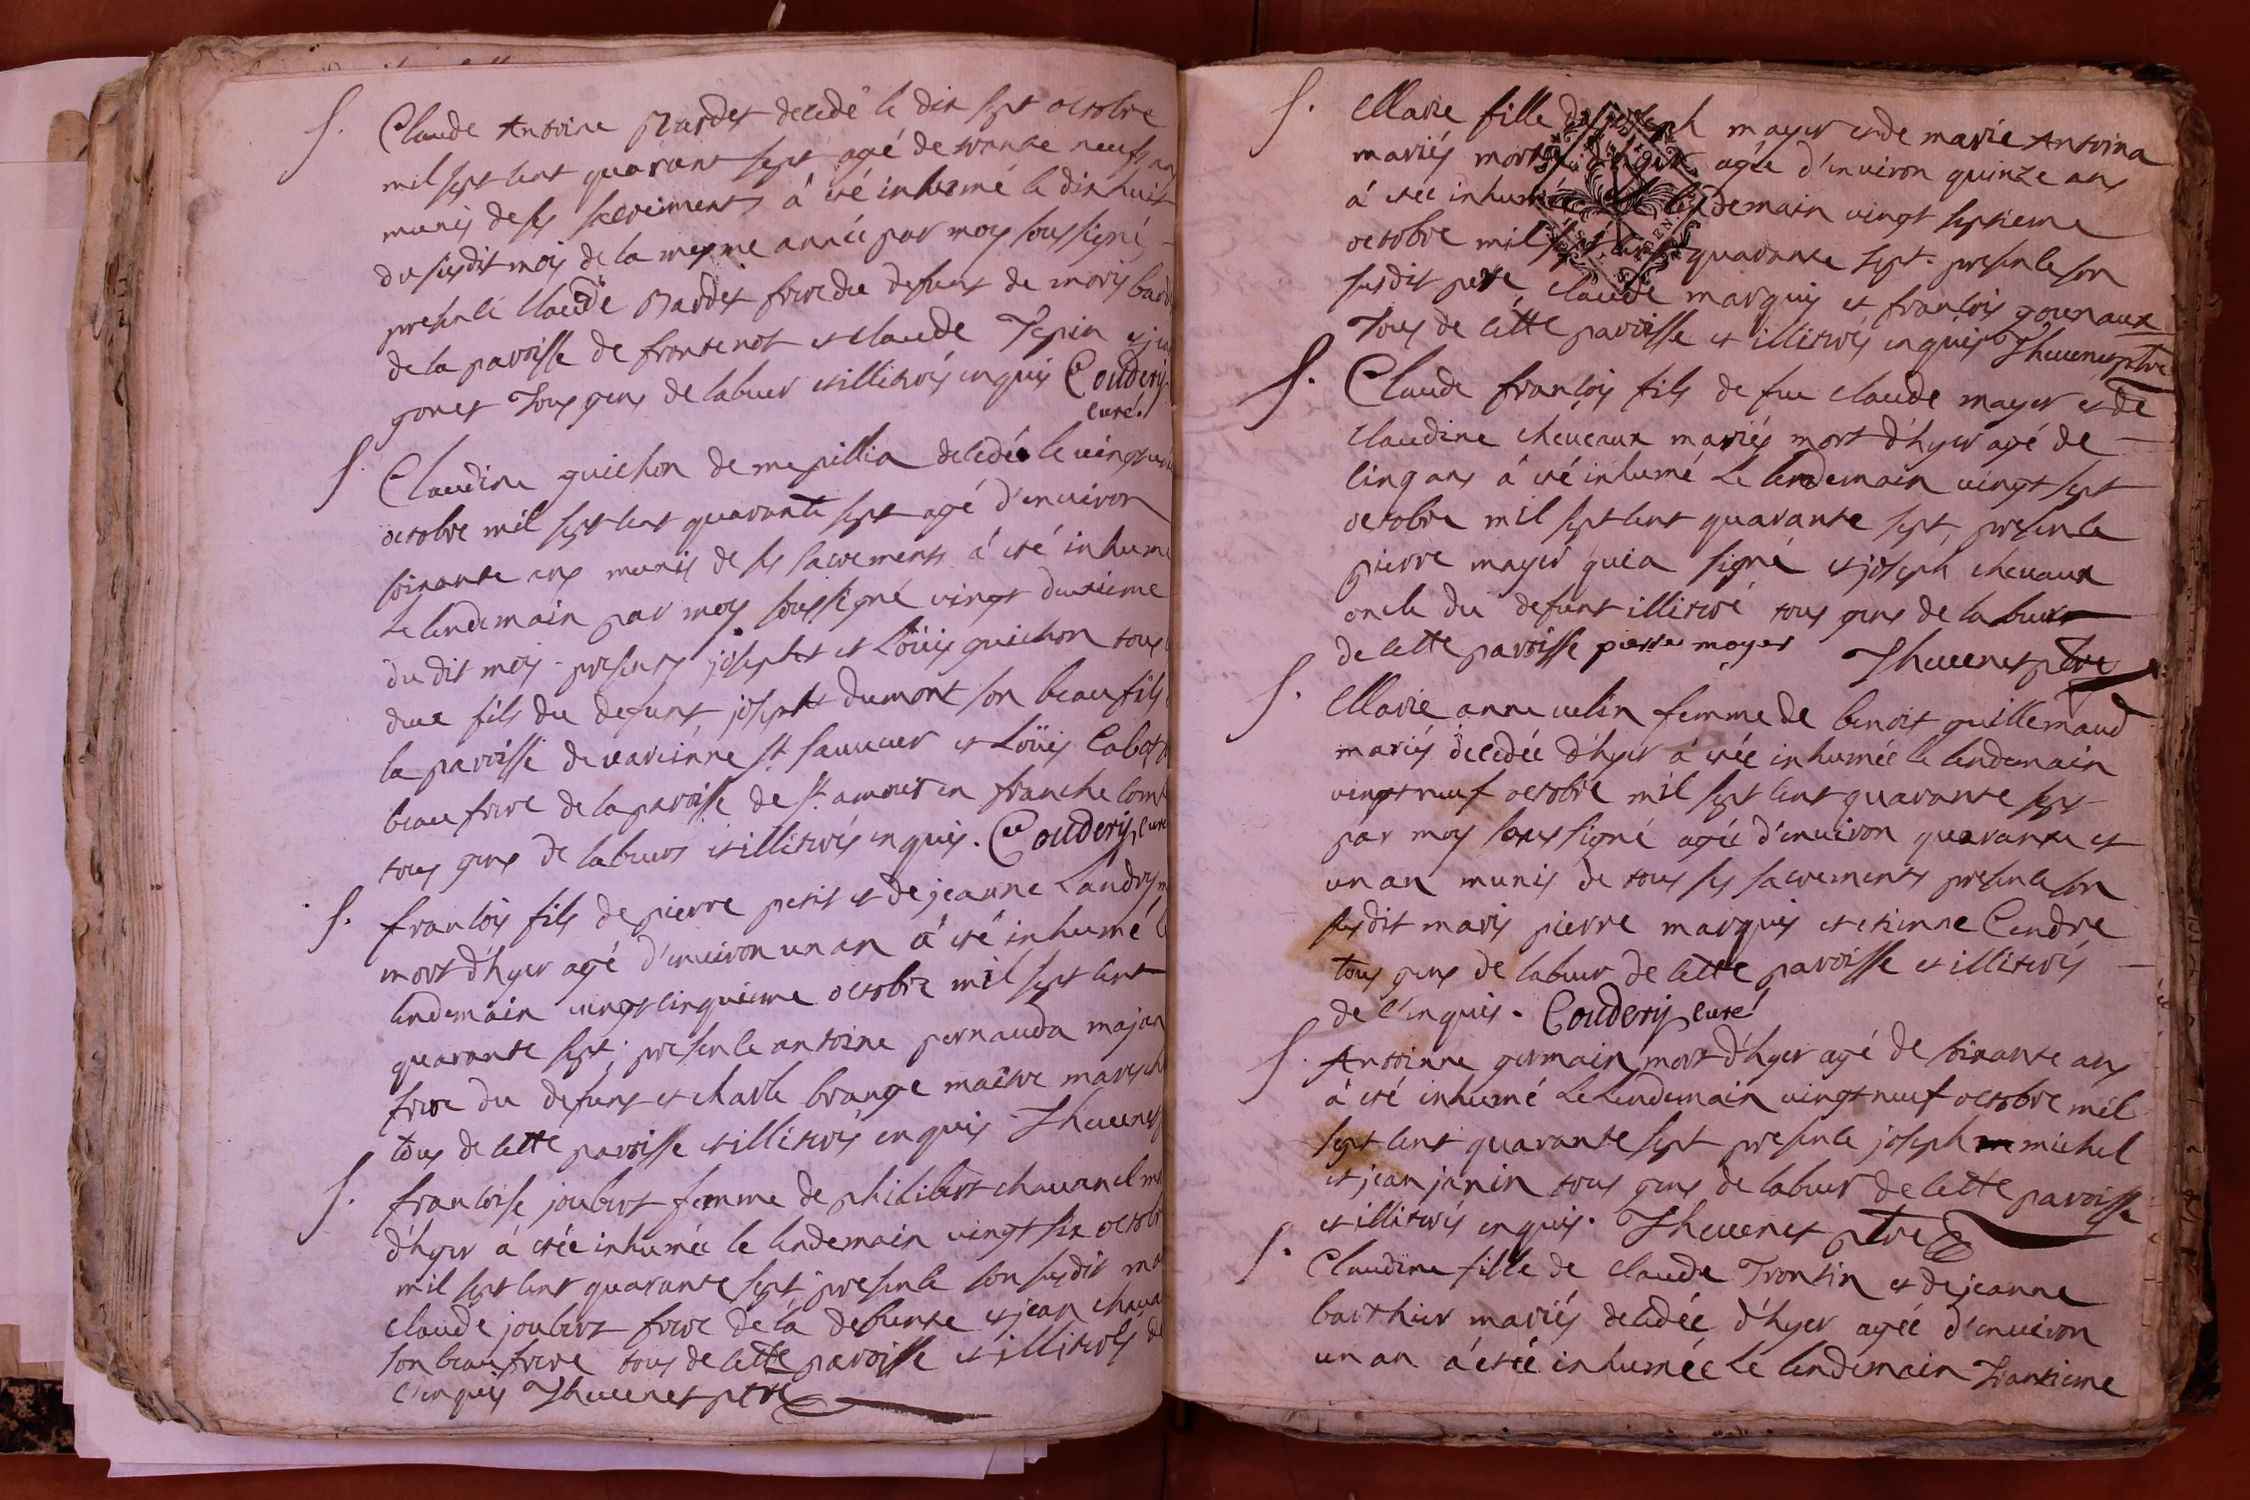 S. Claude Antoine Bardet decedé le dix sept octobre
mil sept cent quarant sept agé de trante neuf ans
munis de ses sacremens á été inhumé le dix huit
du susdit mois de la mesme année par moy soussigné
presence Claude Bardet frere du defunt de moris
de la paroisse de frontenot et claude Pepin et
gonet tous gens de labeur et illiterés enquis Couderij
curé.
S. Claudine guichon de mepillia decedée le vingt
octobre mil sept cent quarante sept agé d'enuiron
soixante ans munis de ses sacrements á été inhumé
Le lendemain par moy soussigné vingt deuxieme
du dit mois presents josepht et Loüis guichon tous
deux fils du defunt josepht dumont son beau fils
la paroisse de varienne st sauueur et Loüis
beau frere de la paroisse de st amour en franche
tous gens de labeur et illiterés enquis. Couderij curé
S. francois fils de pierre petit et de jeanne Landry
mort d'hyer agé d'enuiron un an á été inhumé
lendemain vingt cinquieme octobre mil sept cent
quarante sept, presence antoine pernauda
frere du defunt et charle brange maitre
tous de cette paroisse et illiterés enquis Theuenet
S. francoise joubert femme de philibert chauancl
d'hyer á étée inhumée le lendemain vingt six
mil sept cent quarante sept, presence son susdit
claude joubert frere de la defunte et jean
son beau frere tous de cette paroisse et illiterés de
l'enquis Theuenet ptre
S. Marie fille de joseph mayer et de marie Antoina
mariés morte d'hyer agée d'enuiron quinze ans
á étée inhumée le lendemain vingt septieme
octobre mil sept cent quarante sept. presence son
susdit pere claude marquis et francois gounaux
Tous de cette paroisse et illiterés enquis Theuenet ptre
S. Claude francois fils de feu claude mayer et de
claudine cheueaux mariés mort d'hyer agé de
cinq ans á été inhumé Le lendemain vingt sept
octobre mil sept cent quarante sept, presence
pierre mayer qui a signé et joseph cheuaux
oncle du defunt illiteré tous gens de labeur
de cette paroisse pierre mayer Theuenet ptre
S. Marie anne velin femme de benoit guillemaud
mariés decedée d'hyer á étée inhumée le lendemain
vingt neuf octobre mil sept cent quarante sept
par moy soussigné agée d'enuiron quarante et
un an munis de tous ses sacrements presence son
susdit maris pierre marquis et etienne Cendre
tous gens de labeur de cette paroisse et illiterés
de l'enquis. Couderij curé
S. Antoinne germain mort d'hyer agé de soixante ans
á été inhumé Le lendemain vingt neuf octobre mil
sept cent quarante sept presence joseph michel
et jean janin tous gens de labeur de cette paroisse
et illiterés enquis. Theuenet ptre
S. Claudine fille de claude Trontin et de jeanne
barthier mariés decedée d'hyer agée d'enuiron
un an á étée inhumée le lendemain trantieme